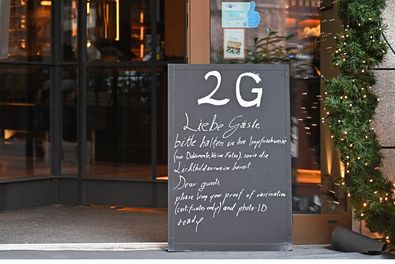 2G
Liebe Gäste,
bitte halten sie ihre Impfnachweise
(nur Dokumente, keine Fotos), sowie die
Lichtbildausweise bereit.
Dear guests,
please bring your proof of vaccination
(certificates only) and photo-ID
ready